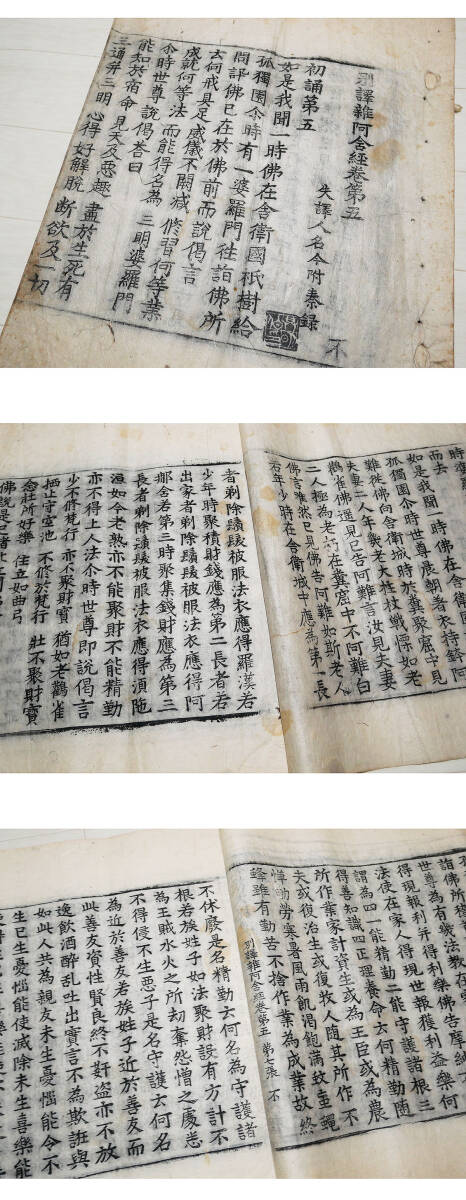 別譯雜阿含經卷第五 不
失譯人名今附秦録
初誦第五
如是我聞一時佛在舍衛國祇樹給
孤獨園尒時有一婆羅門徃詣佛所
問訊佛已在於佛前而說偈言
去何戒具足威儀不闕減 修習何等業
成就何等法 而能得名為 三明婆羅門
尒時世尊說偈荅曰
能知於宿命 見天及惡趣 盡於生死有
三通并三明 心得好解脫 斷欲及一切
時婆羅
而去
如是我聞一時佛在舍衛國
孤獨園尒時世尊晨朝著衣持鉢阿
難從佛向舍衛城時於糞聚窟中見
夫妻二人年幾老大柱杖戰慄如老
鸛雀佛遥見已告阿難言汝見夫妻
二人極為老朽在糞窟中不阿難白
佛言唯然已見佛告阿難如斯老人
若年少時在舍衛城中應為第一長
者剃除鬚髮被服法衣應得羅漢若
少年時聚積財錢應為第二長者若
出家者剃除鬚髮被服法衣應得阿
那含若第三時聚集錢財應為第三
長者剃除鬚髮被服法衣應得湏陁
洹如今老熟亦不能聚財不能精勤
亦不得上人法尒時世尊即說偈言
少不修梵行 亦不聚財寶 猶如老鸛雀
栖止守空池 不修於梵行 壯不聚財寶
念壯所好樂 住立如曲弓
佛說是已諸
詣佛所
世尊為有幾法教在
得現報利并得利樂佛告摩納
法使在家人得現世報獲利益樂何
謂為四一能精勤二能守護諸根三
得善知識四正理養命云何精勤隨
所作業家計資生或為王臣或為農
夫或復治生或復牧人随其所作不
憚勤勞寒暑風雨飢渴飽滿蚊虻蠅
蜂雖有勤苦不捨作業為成業故終
別譯雜阿含經卷第五 第七張 不
不休廢是名精勤云何名為守護諸
根若族姓子如法聚財設有方計不
為王賊水火之所劫棄怨憎之處悉
不得侵不生惡子是名守護云何名
為近於善友若族姓子近於善友而
此善友資性賢良終不姧盗亦不放
逸飲酒醉乱吐出實言不為欺誑與
如此人共為親友未生憂惱能令不
生已生憂惱能使滅除未生喜樂能